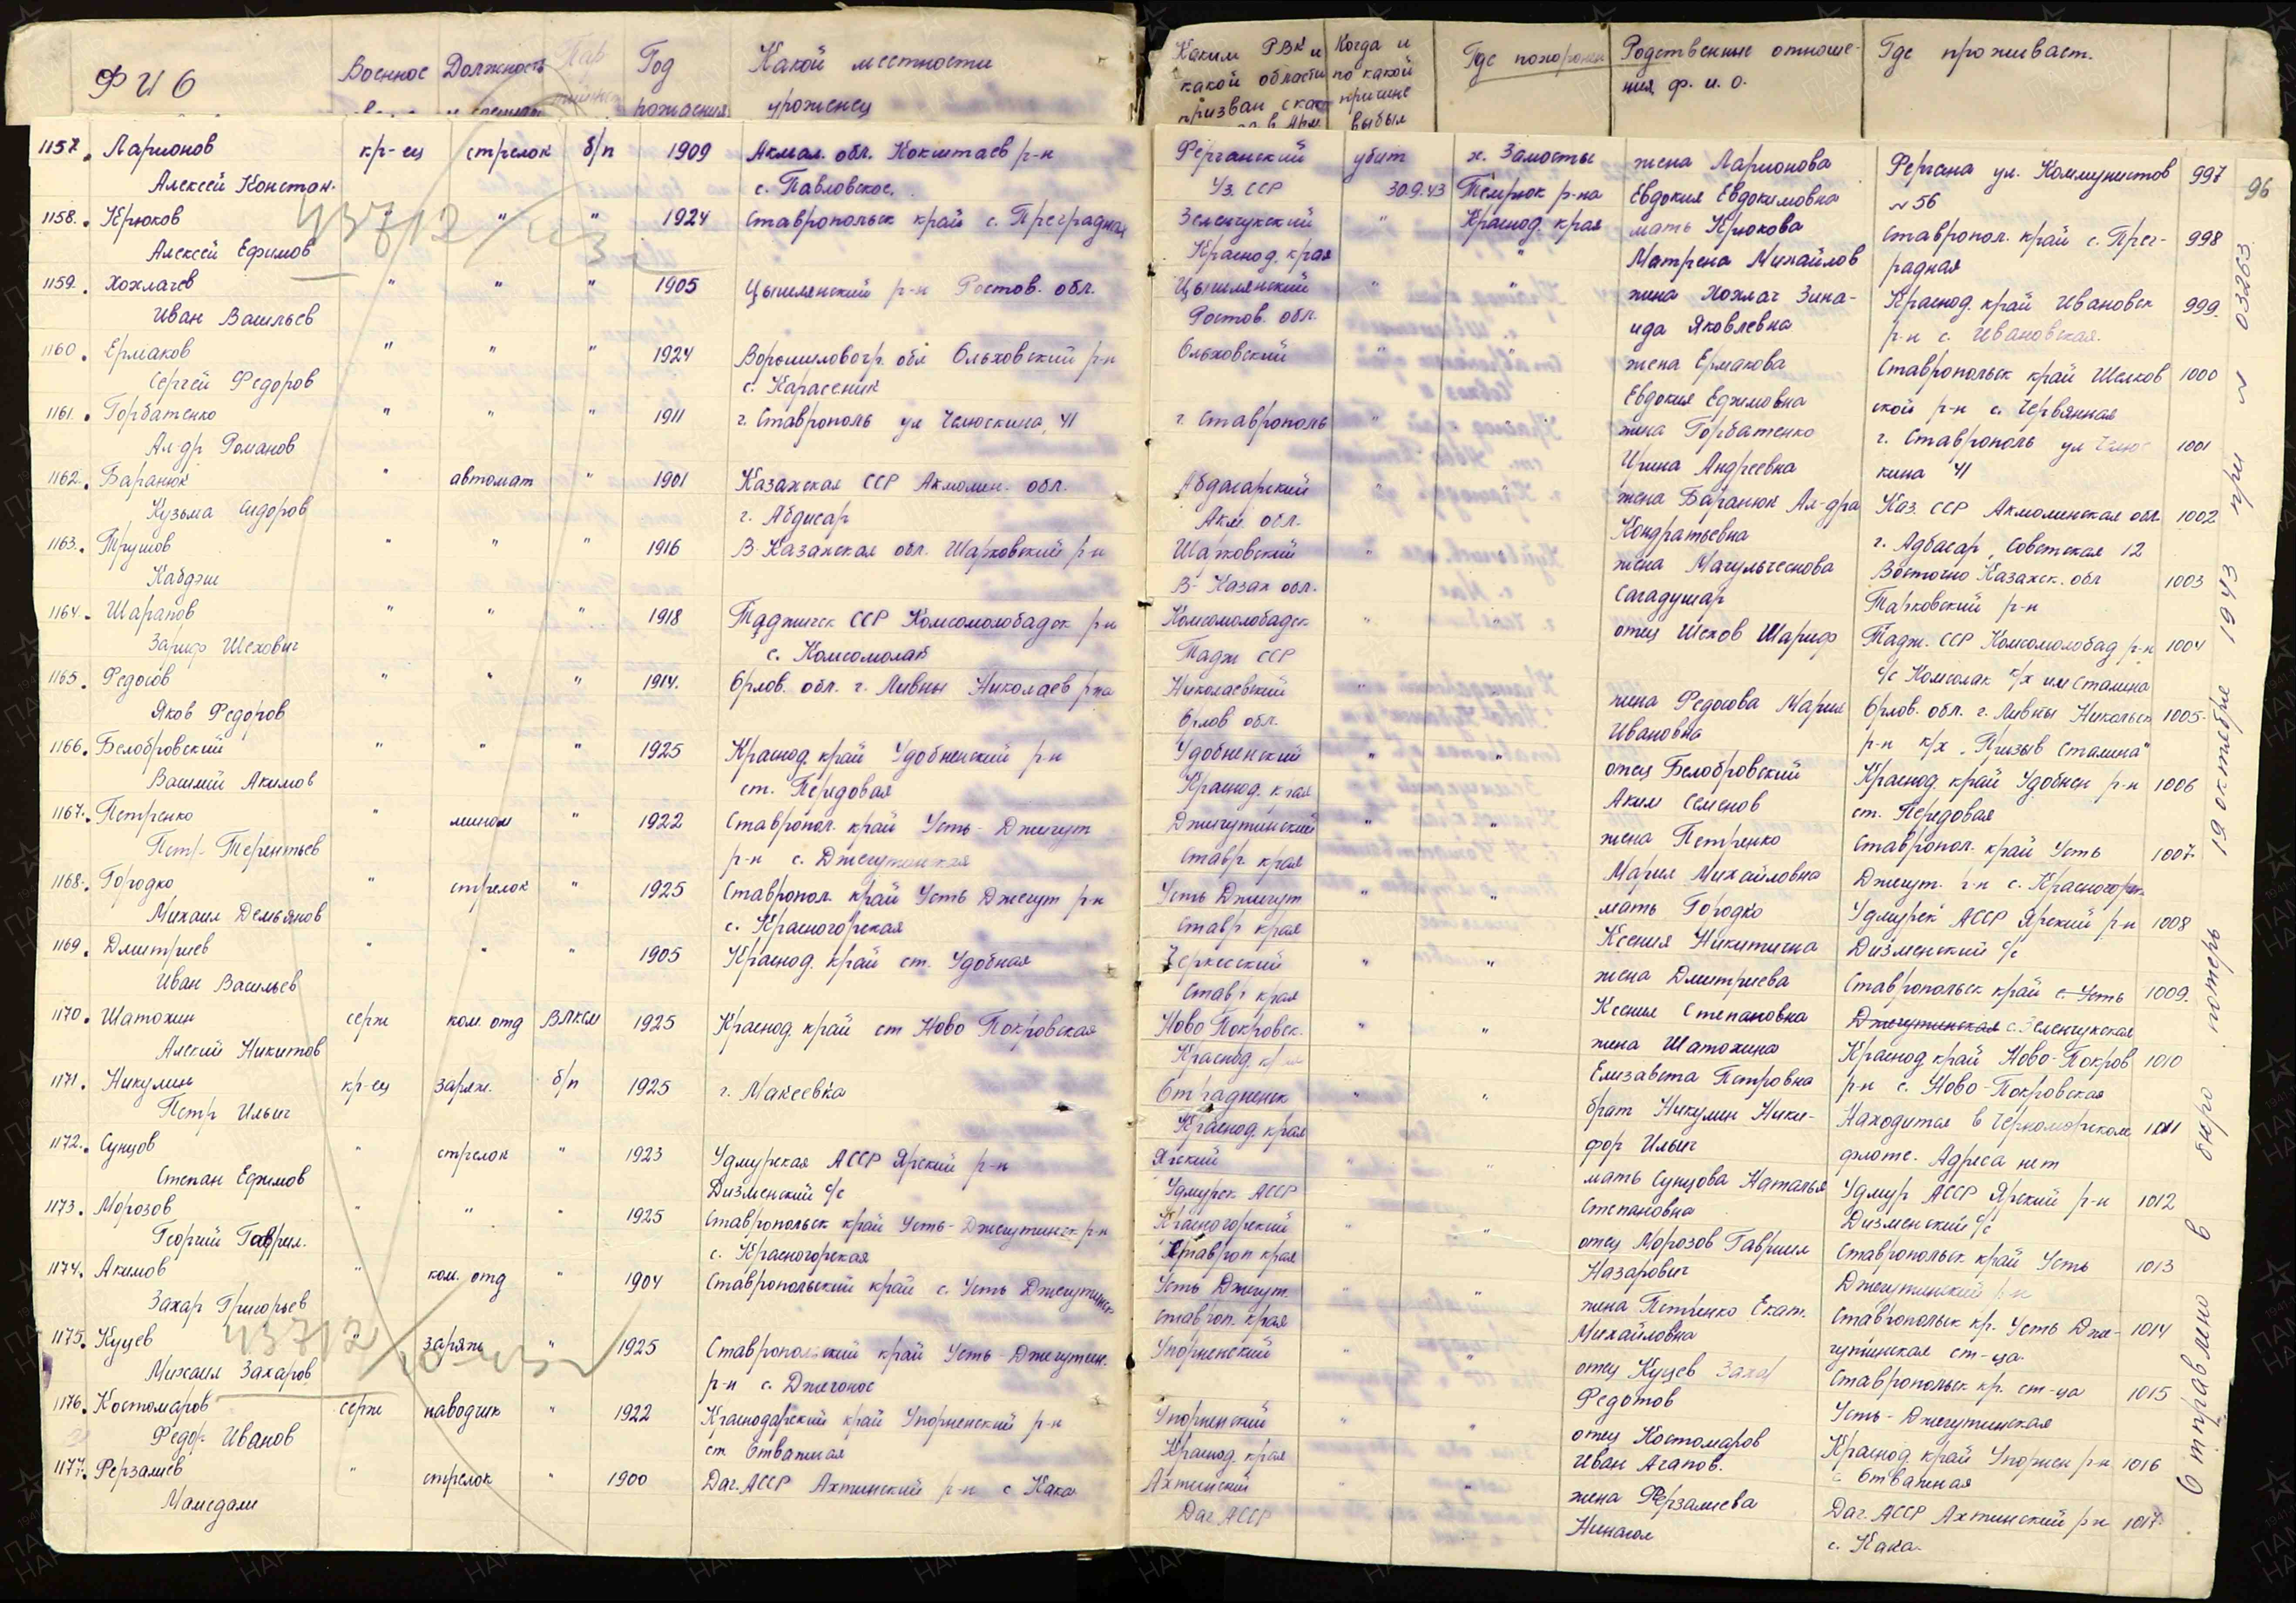 ФИО
Военное
Должность
Год
рождения
Какой местности
уроженец
Каким РВК и
какой области
призван
Когда и
по какой
причине
выбыл
Где похоронен
Родственные отноше-
ния ф. и. о.
Где проживает.
1157. Ларионов кр-ец стрелок б/п 1909 Акмол. обл. Кокчетаев р-н Ферганский убит х. Замосты жена Ларионова Фергана ул. Коммунистов 997 96
Алексей Констан. с. Павловское. Уз. ССР 30.9.43 Темрюк р-на Евдокия Евдокимовна № 56
1158. Крюков " " " 1924 Ставропольск край с. Преградная Зеленчукский " Краснод. края мать Крюкова Ставропол. край с. Прег- 998
Алексей Ефимов Краснод. края " Матрена Михайлов радная
1159. Хохлачев " " " 1905 Цымлянский р-н Ростов. обл. Цымлянский " " жена Хохлач Зина- Краснод. край Ивановск 999.
Иван Васильев Ростов. обл. ида Яковлевна р-н с. Ивановская.
1160. Ермаков " " " 1924 Ворошиловогр. обл Ольховский р-н Ольховский " " жена Ермакова Ставропольск край Шелков 1000
Сергей Федоров с. Карасеник Евдокия Ефимовна ской р-н с. Червянная
1161. Горбатенко " " " 1911 г. Ставрополь ул Челюскина, 41 г. Ставрополь " жена Горбатенко г. Ставрополь ул Челюс 1001
Ал-др Романов Ирина Андреевна кина 41
1162. Баранюк " автомат " 1901 Казахская ССР Акмолин. обл. Абдасарский " " жена Баранюк Ал-дра Каз. ССР Акмолинская обл. 1002
Кузьма Сидоров г. Абдисар Акм. обл. Кондратьевна г. Адбасар, Советская 12
1163. Трушов " " " 1916 В-Казахская обл. Шарковский р-н Шарковский " жена Магульчеснова Восточно Казахск. обл 1003
Кабдэш В-Казах обл. Сагадушар Тарковский р-н
1164. Шарапов " " " 1918 Таджикск ССР Комсомолобадск р-н Комсомолобадск " " отец Шехов Шариф Тадж. ССР Комсомолобад р-н 1004
Зариф Шехович с. Комсомолаб Тадж ССР с/с Комсолак к/х им Сталина
1165. Федосов " " " 1914. Орлов. обл. г. Ливны Николаев р-на Николаевский " жена Федосова Мария Орлов. обл. г. Ливны Никольск 1005.
Яков Федоров Орлов обл. Ивановна р-н к/х „Призыв Сталина"
1166. Белобровский " " " 1925 Краснод. край Удобненский р-н Удобненский " " отец Белобровский Краснод. край Удобнен р-н 1006
Василий Акимов ст. Передовая Краснод. края Аким Семенов ст. Передовая
1167. Петренко " мином " 1922 Ставропол. край Усть-Джегут Джегутинский " " жена Петренко Ставропол. край Усть 1007.
Петр Терентьев р-н с. Джегутинская Ставр. края Мария Михайловна Джегут. р-н с. Красногорск
1168. Городко " стрелок " 1925 Ставропол. край Усть Джегут р-н Усть Джегут " " мать Городко Удмурск АССР Ярский р-н 1008
Михаил Демьянов с. Красногорская Ставр края Ксения Никитична Дизменский с/с
1169. Дмитриев " " " 1905 Краснод. край ст. Удобная Черкесский " " жена Дмитриева Ставропольск край с. Усть 1009.
Иван Васильев Ставр края Ксения Степановна Джегутинская с. Зеленчукская
1170. Шатохин серж ком. отд ВЛКСМ 1925 Краснод. край ст Ново Покровская Ново Покровск. " " жена Шатохина Краснод край Ново-Покров 1010
Алексий Никитов Краснод. края Елизавета Петровна р-н с. Ново-Покровская
1171. Никулин кр-ец заряж. б/п 1925 г. Макеевка Отрадненск " " брат Никулин Ники- Находится в Черноморском 1011
Петр Ильич Краснод. края фор Ильич флоте. Адреса нет
1172. Сунцов " стрелок " 1923 Удмурская АССР Ярский р-н Ярский " " мать Сунцова Наталья Удмур АССР Ярский р-н 1012
Степан Ефимов Дизменский с/с Удмурск АССР Степановна Дизменский с/с
1173. Морозов " " " 1925 Ставропольск край Усть-Джегутинск р-н Красногорский " " отец Морозов Гавриил Ставропольск край Усть 1013
Георгий Гаврил. с. Красногорская Ставроп края Назарович Джегутинский р-н
1174. Акимов " ком. отд " 1904 Ставропольский край с. Усть Джегутинск Усть Джегут. " " жена Петренко Екат. Ставропольск кр. Усть Дже- 1014
Захар Григорьев Ставроп. края Михайловна гутинская ст-ца.
1175. Куцев " заряж " 1925 Ставропольский край Усть-Джегутин. Упорненский " " отец Куцев Захар Ставропольск кр. ст-ца 1015
Михаил Захаров р-н с. Джегонос Федотов Усть-Джегутинская
1176. Костомаров серж наводчик " 1922 Краснодарский край Упорненский р-н Упорненский " " отец Костомаров Краснод. край Упорнен р-н 1016
Федор Иванов ст Отважная Краснод. края Иван Агапов. с Отважная
1177. Ферзалиев " стрелок " 1900 Даг. АССР Ахтынский р-н с Кака Ахтынский " " жена Ферзалиева Даг. АССР Ахтынский р-н 1017.
Мамедали Даг АССР Нинагол с. Кака.
43712
43712
Отправлено в бюро потерь 19 октября 1943 при № 03263